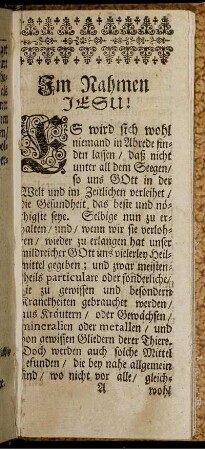 Im Nahmen
JESU!
ES wird sich wohl
niemand in Abrede fin-
den lassen / daß nicht
unter all dem Seegen /
so uns GOtt in der
Welt und im Zeitlichen verleihet /
die Gesundheit das beste und nö-
thigste seye. Selbige nun zu er-
halten / und / wenn wir sie verloh-
ren / wieder zu erlangen hat unser
mildreicher GOtt uns vielerley Heil-
mittel gegeben; und zwar meisten-
theils particulare oder sonderliche /
die zu gewissen und besondern
Kranckheiten gebrauchet werden /
aus Kräutern / oder Gewächsen /
mineralien oder metallen / und
von gewissen Gliedern derer Thiere.
Doch werden auch solche Mittel
gefunden / die bey nahe allgemein
sind / wo nicht vor alle / gleich-
A wohl